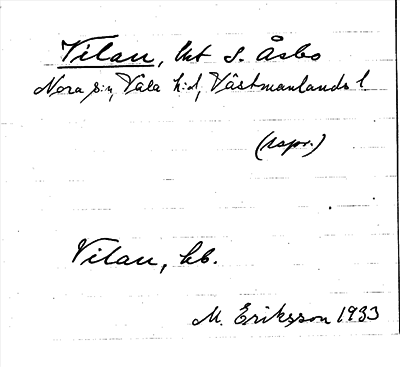 Vilan, lht S. Åsbo
Nora s:n, Våla h:d, Västmanlands l.
(Aspr.)
Vilan, hb.
M. Eriksson 1933